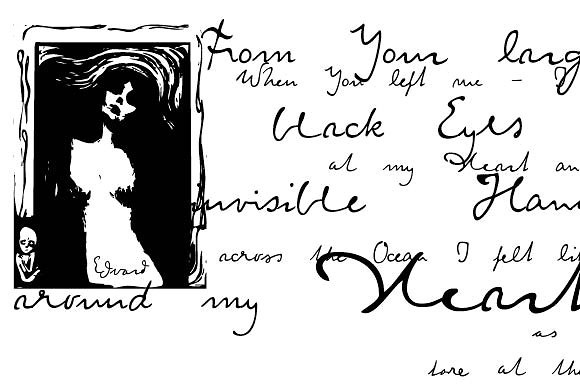 From Your larg
When You left me –
black Eyes
at my Heart an
invisible Han
across the Ocean I felt li
Edvard
around my Heart
as
tore at the